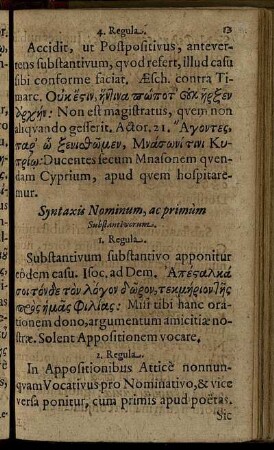 4. Regula. 13
Accidit, ut Postpositivus, antever-
tens substantivum, qvod refert, illud casu
sibi conforme faciat. Æsch. contra Ti-
marc. Οὐκ ἔςιν, ἥντινα πώποτ᾽ οὐκ ἦρξεν
ἀρχήν: Non est magistratus, qvem non
aliqvando gesserit. Actor. 21. Ἄγοντες,
παρ᾽ ᾧ ξενισθῶμεν, Μνάσωνί τινι Κυ-
πρίῳ: Ducentes secum Mnasonem qven-
dam Cyprium, apud qvem hospitare-
mur.
Syntaxis Nominum, ac primùm
Substantivorum.
1. Regula.
Substantivum substantivo apponitur
eodem casu. Isoc. ad Dem. Ἀπέςαλκά
σοι τόνδε τὸν λόγον δῶρον, τεκμήριον τῆς
πρὸς ἡμᾶς φιλίας: Misi tibi hanc ora-
tionem dono, argumentum amicitiæ no-
stræ. Solent Appositionem vocare.
2. Regula.
In Appositionibus Atticè nonnun-
qvam Vocativus pro Nominativo, & vice
versa ponitur, cum primis apud poëtas.
Sic